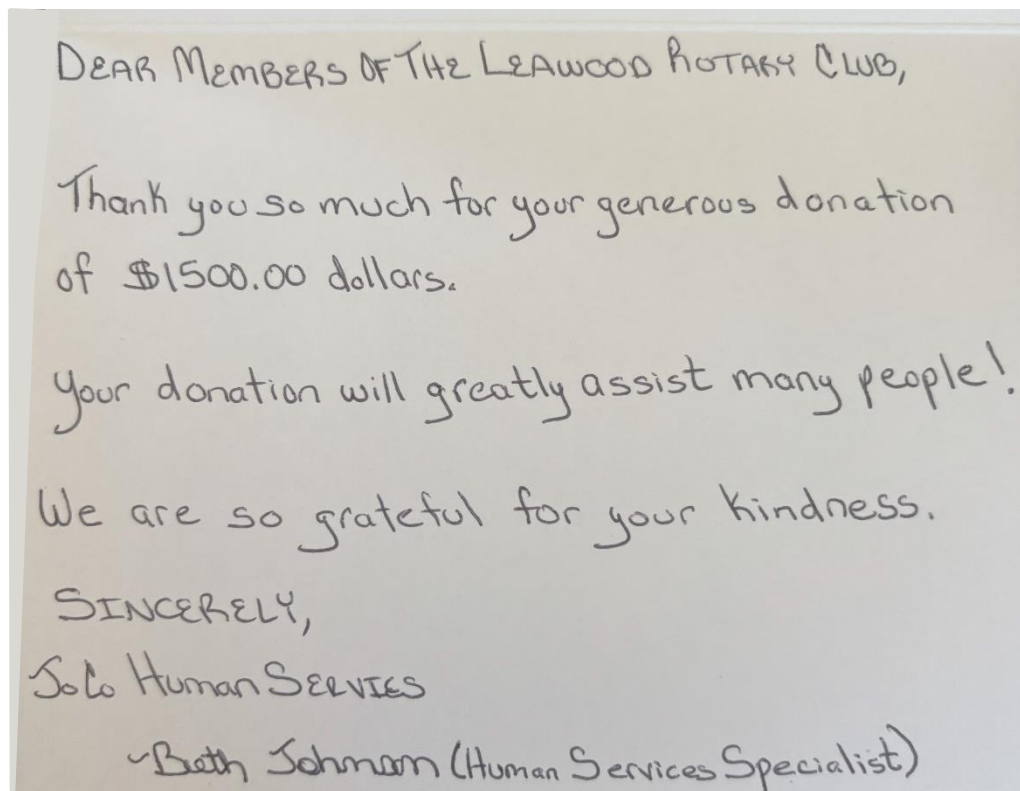 DEAR MEMBERS OF THE LEAWOOD ROTARY CLUB,
Thank you so much for your generous donation
of $1500.00 dollars.
Your donation will greatly assist many people!
We are so grateful for your kindness.
SINCERELY,
JoCo HUMAN SERVIES
~Beth Johnson (Human Services Specialist)